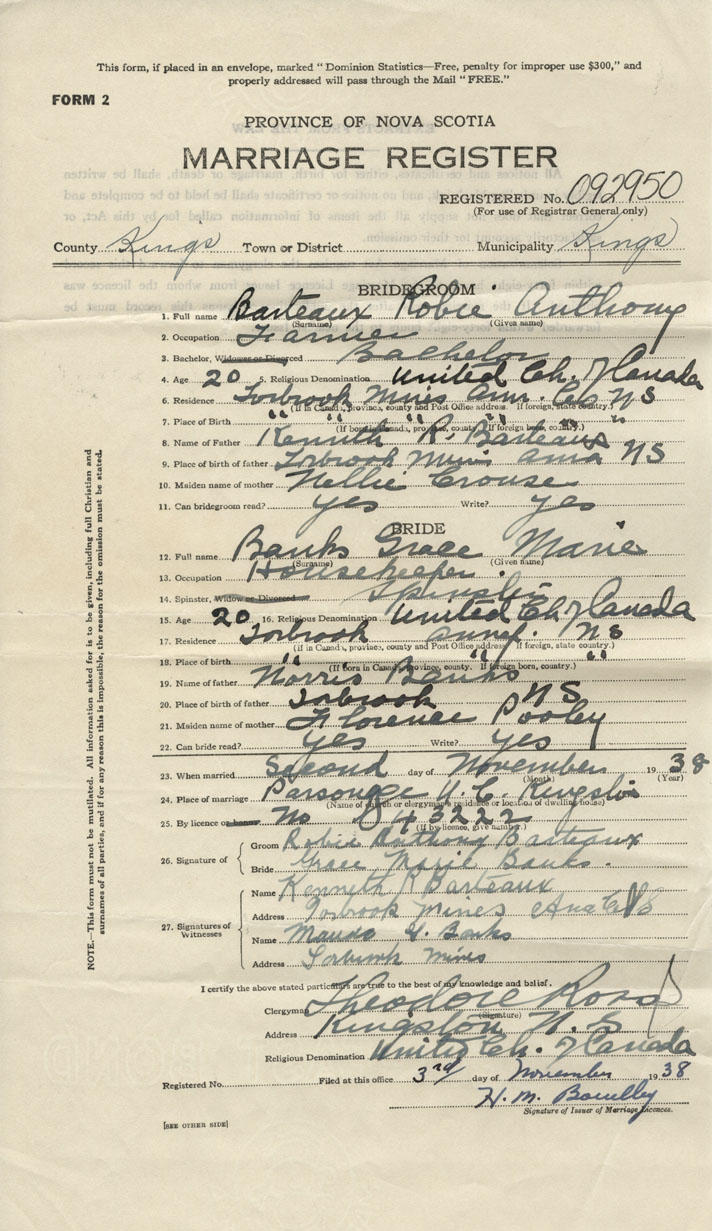 This form, if placed in an envelope, marked "Dominion Statistics—Free, penalty for improper use $300," and
properly addressed will pass through the Mail "FREE."
FORM 2
PROVINCE OF NOVA SCOTIA
MARRIAGE REGISTER
REGISTERED No. 092950
(For use of Registrar General only)
County Kings Town or District Municipality Kings
BRIDEGROOM
1. Full name Barteaux Robie Anthony
(Surname) (Given name)
2. Occupation Farmer
3. Bachelor, Widower or Divorced Bachelor
4. Age 20 5. Religious Denomination United Ch. of Canada
6. Residence Torbrook Mines Ann. Co. N S
(If in Canada, province, county and Post Office address. If foreign, state country.)
7. Place of Birth " " " "
(If born in Canada, province, county. If foreign born, country.)
8. Name of Father Kennith R. Barteaux
9. Place of birth of father Torbrook Mines Anna N S
10. Maiden name of mother Nellie Crouse
11. Can bridegroom read? yes Write? yes
BRIDE
12. Full name Banks Grace Marie
(Surname) (Given name)
13. Occupation Housekeeper.
14. Spinster, Widow or Divorced Spinster
15. Age 20 16. Religious Denomination United Ch. of Canada
17. Residence Torbrook Annap. N S
(If in Canada, province, county and Post Office address. If foreign, state country.)
18. Place of birth " " "
(If born in Canada, province, county. If foreign born, country.)
19. Name of father Norris Banks
20. Place of birth of father Torbrook N S
21. Maiden name of mother Florence Pooley
22. Can bride read? yes Write? yes
23. When married Second day of November 1938
(Month) (Year)
24. Place of marriage Parsonage U. C. Kingston
(Name of church or clergyman's residence or location of dwelling house)
25. By licence or banns No 43222
(If by licence, give number.)
26. Signature of
Groom Robie Anthony Barteaux
Bride Grace Marie Banks.
27. Signatures of Witnesses
Name Kenneth R Barteaux
Address Torbrook Mines Anna Co NS
Name Banks
Address Torbrook Mines
I certify the above stated particulars are true to the best of my knowledge and belief.
Clergyman Theodore Ross
(Signature)
Address Kingston N. S
Religious Denomination United Ch. of Canada
Registered No. Filed at this office 3rd day of November 1938
H. M.
Signature of Issuer of Marriage Licences.
[SEE OTHER SIDE]
NOTE.—This form must not be mutilated. All information asked for is to be given, including full Christian and
surnames of all parties, and if for any reason this is impossible, the reason for the omission must be stated.